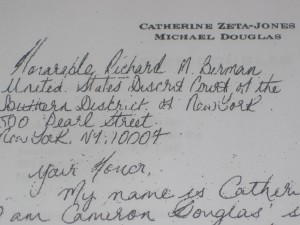 CATHERINE ZETA-JONES
MICHAEL DOUGLAS
Honorable Richard M. Berman
United States District Court of the
Southern District of New York
500 Pearl Street
New York, NY, 10007
Your Honor,
My name is Catheri
I am Cameron Douglas' s